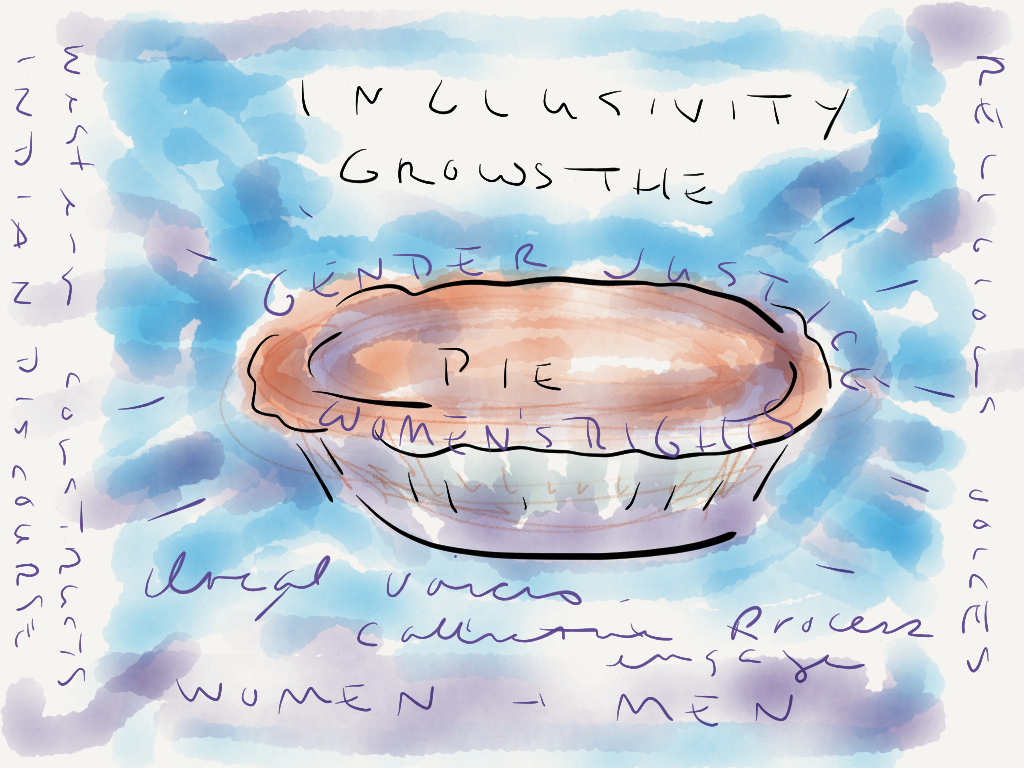 INCLUSIVITY
GROWS THE
GENDER JUSTICE
PIE
WOMEN'S RIGHTS
local voices
Collective Process
engage
WOMEN - MEN
INDIAN DISCOURSE
WESTERN CONSTRUCTS
RELIGIOUS VOICES